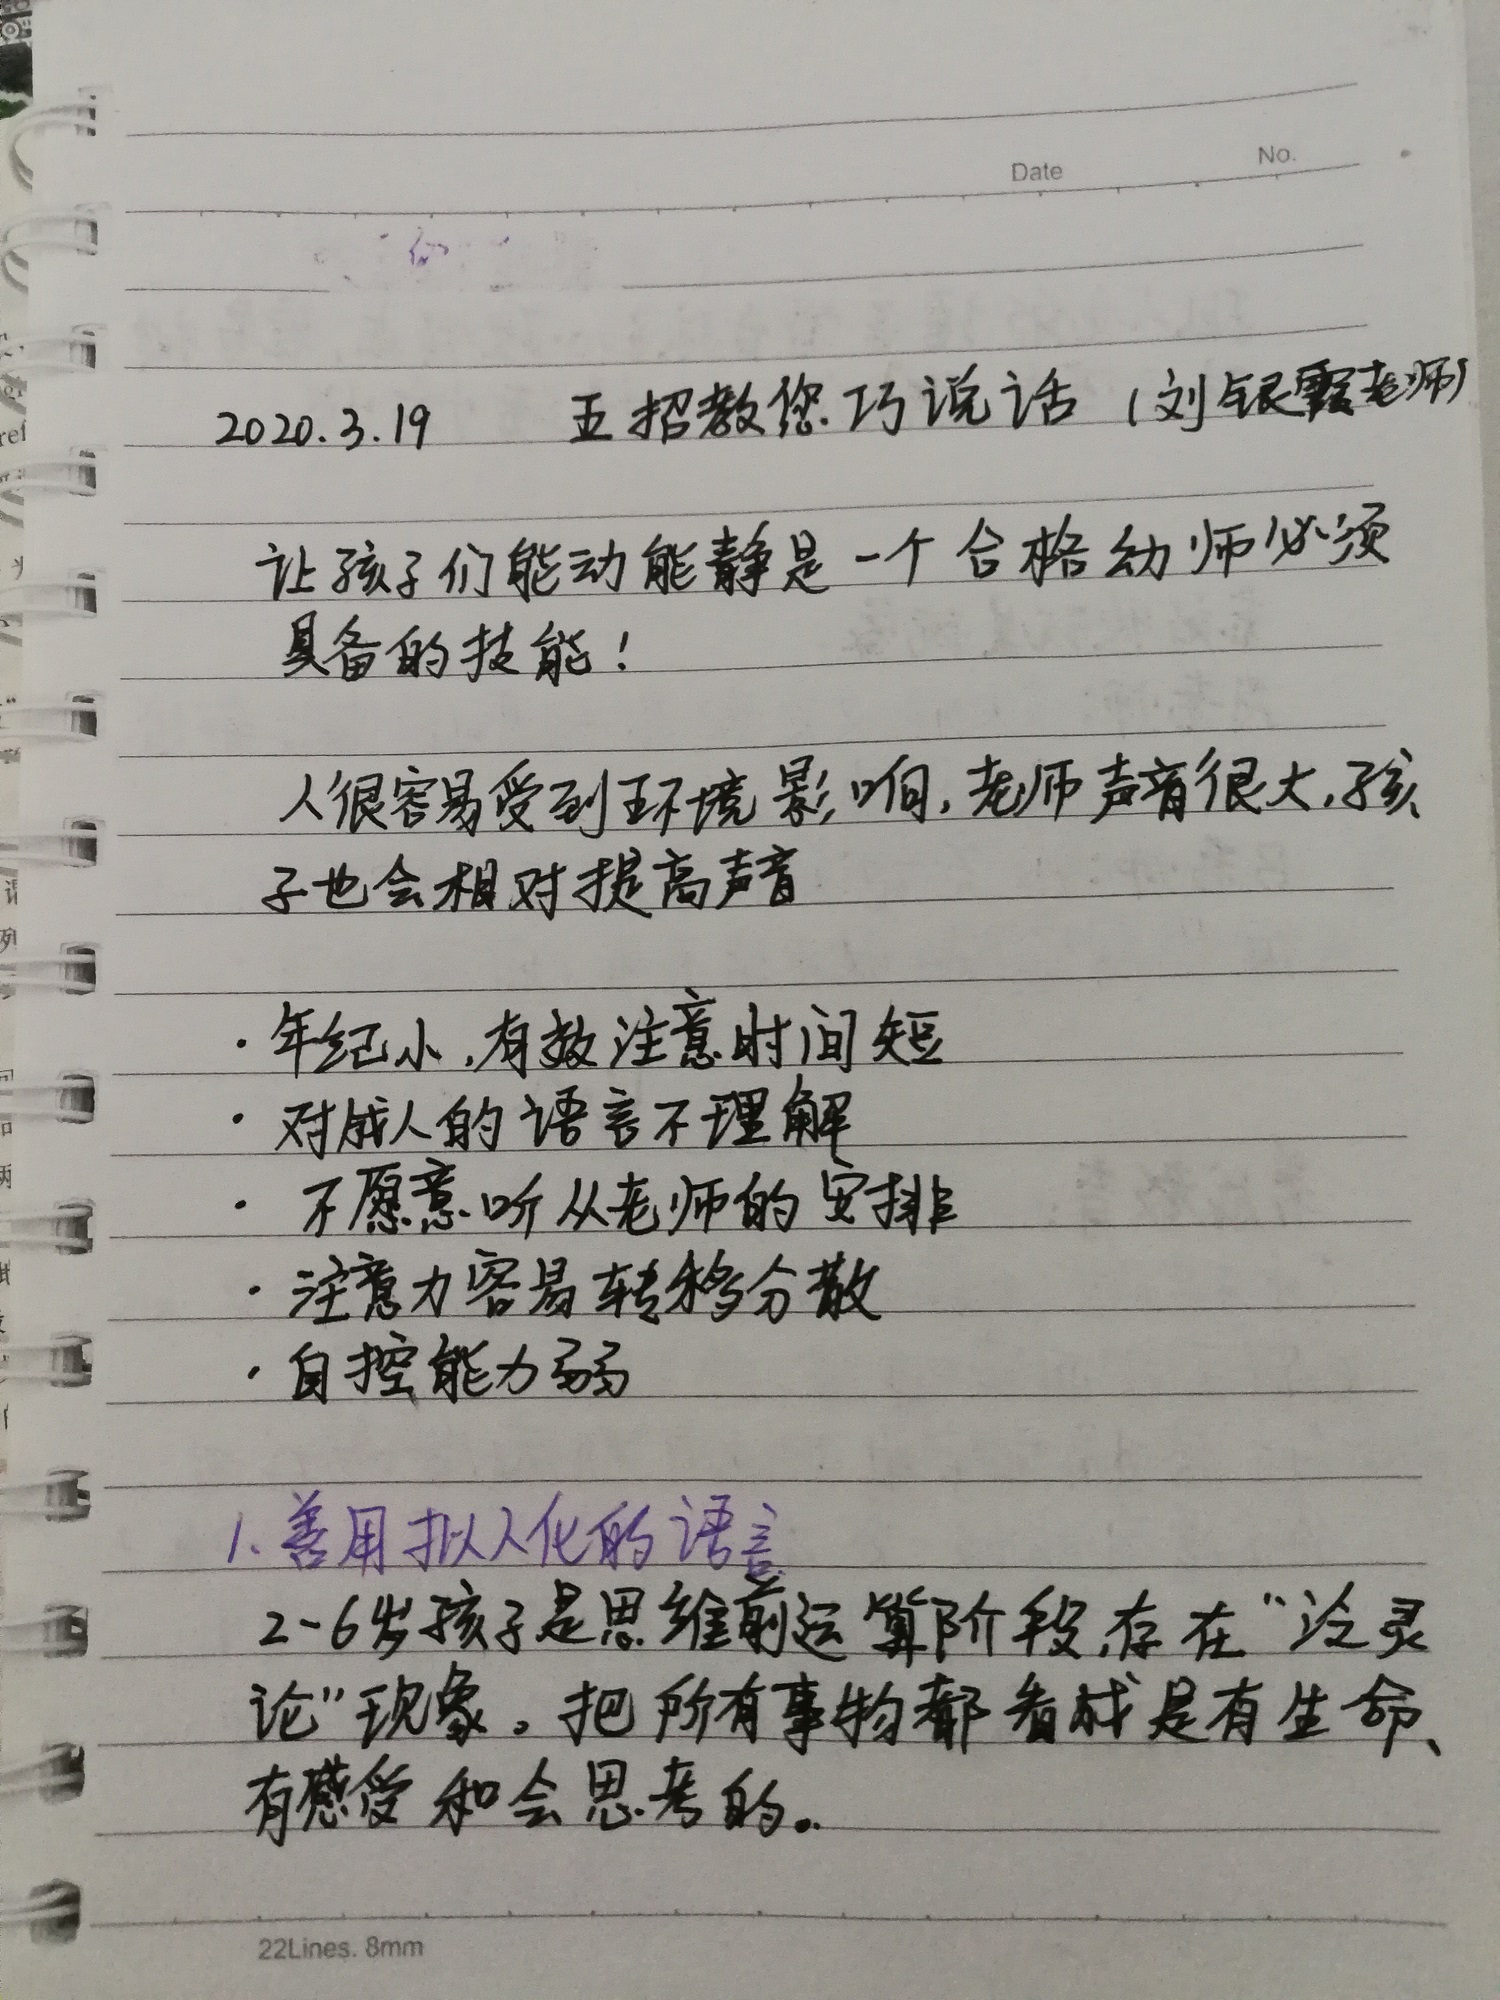 Date No.
2020.3.19 五招教您巧说话（刘银霞老师）
让孩子们能动能静是一个合格幼师必须
具备的技能！
人很容易受到环境影响，老师声音很大，孩
子也会相对提高声音
·年纪小，有效注意时间短
·对成人的语言不理解
·不愿意听从老师的安排
·注意力容易转移分散
·自控能力弱
1.善用拟人化的语言
2-6岁孩子是思维前运算阶段，存在“泠灵
论”现象。把所有事物都看成是有生命、
有感受和会思考的。
22Lines. 8mm